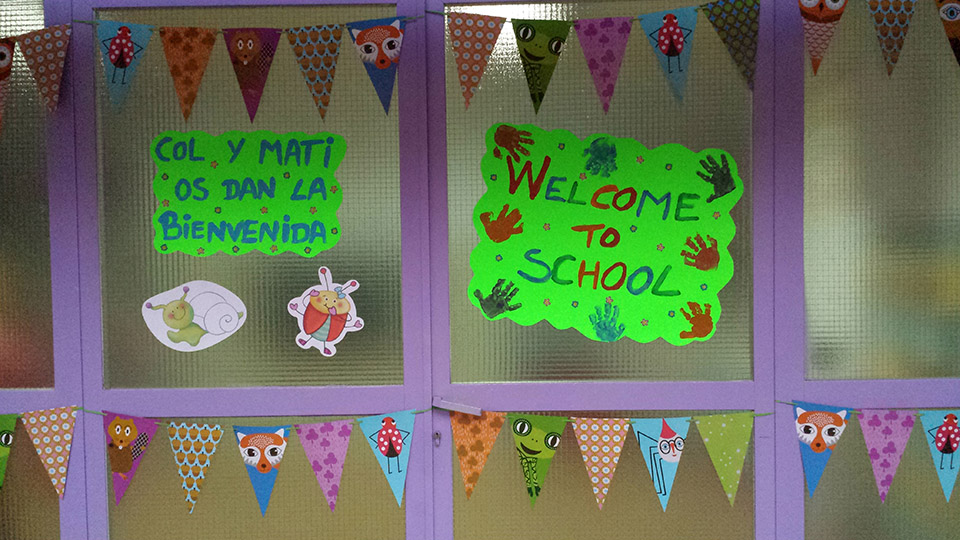 COL Y MATI
OS DAN LA
BIENVENIDA
WELCOME
TO
SCHOOL